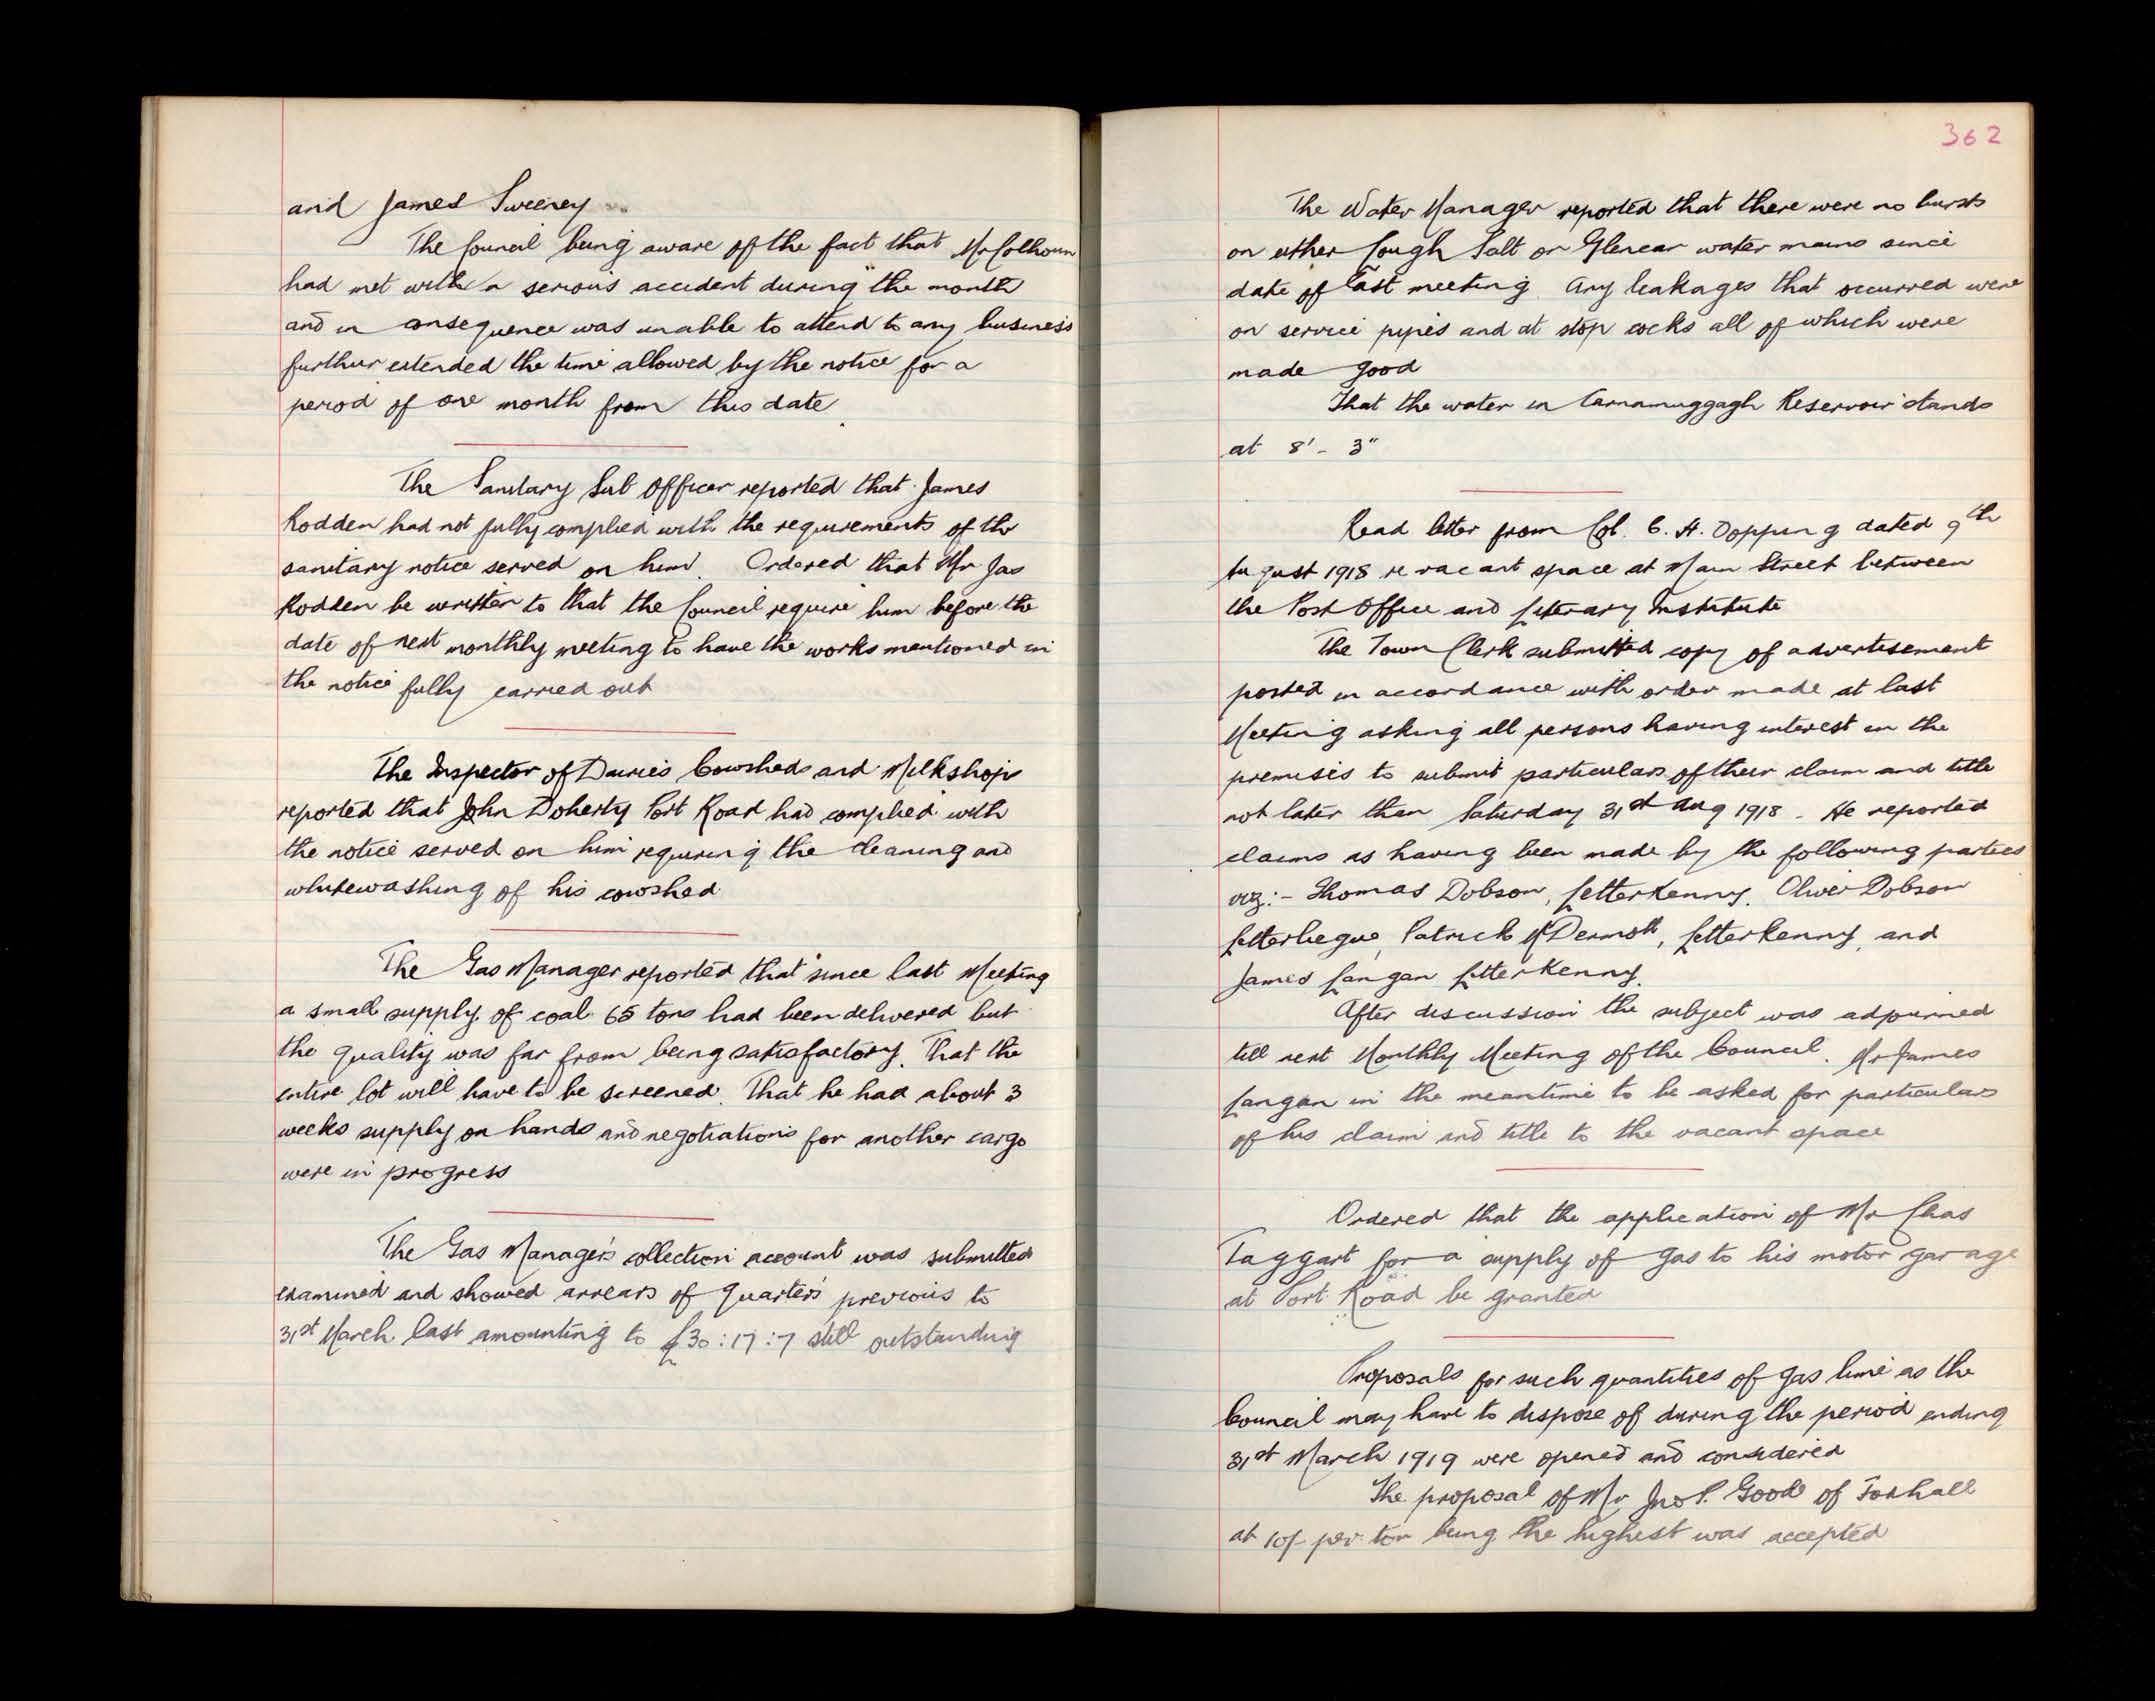 and James Sweeney
The Council being aware of the fact that Mr Colhoun
had met with a serious accident during the month
and in consequence was unable to attend to any business
further extended the time allowed by the notice for a
period of one month from this date.
The Sanitary Sub Officer reported that James
Rodden had not fully complied with the requirements of the
sanitary notice served on him. Ordered that Mr Jas
Rodden be written to that the Council require him before the
date of next monthly meeting to have the works mentioned in
the notice fully carried out
The Inspector of Dairies Cowsheds and Milkshops
reported that John Doherty Port Road had complied with
the notice served on him requiring the cleaning and
whitewashing of his cowshed
The Gas Manager reported that since last Meeting
a small supply of coal 65 tons had been delivered but
the quality was far from being satisfactory. That the
entire lot will have to be screened. That he had about 3
weeks supply on hands and negotiations for another cargo
were in progress
The Gas Manager's collection account was submitted
examined and showed arrears of Quarters previous to
31st March last amounting to £30:17:7 still outstanding
362
The Water Manager reported that there were no bursts
on either Lough Salt or Glencar water mains since
date of last meeting. Any leakages that occurred were
on service pipes and at stop cocks all of which were
made good
That the water in Carnamuggagh Reservoir stands
at 8' - 3"
Read letter from Col. C. H. Dopping dated 9th
August 1918 re vacant space at Main Street between
the Post Office and Literary Institute
The Town Clerk submitted copy of advertisement
posted in accordance with order made at last
Meeting asking all persons having interest in the
premises to submit particulars of their claim and title
not later than Saturday 31st Aug 1918 - He reported
claims as having been made by the following parties
viz:- Thomas Dobson, Letterkenny. Oliver Dobson
Letterleague, Patrick McDermott, Letterkenny, and
James Langan Letterkenny.
After discussion the subject was adjourned
till next Monthly Meeting of the Council. Mr James
Langan in the meantime to be asked for particulars
of his claim and title to the vacant space
Ordered that the application of Mr Chas
Taggart for a supply of gas to his motor garage
at Port Road be granted
Proposals for such quantities of gas lime as the
Council may have to dispose of during the period ending
31st March 1919 were opened and considered
The proposal of Mr Jno P. Goode of Foxhall
at 10/- per ton being the highest was accepted